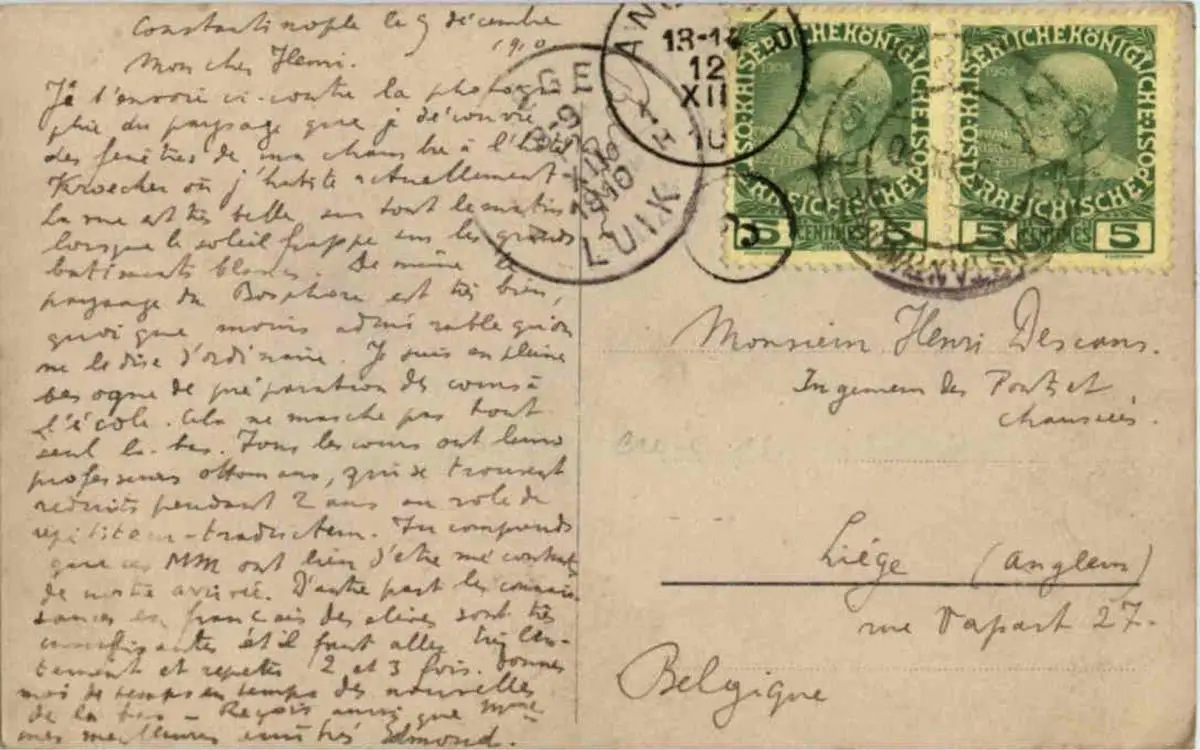 Constantinople le 9 décembre
1910
Mon cher Henri.
Je t'envoie ci-contre la photogra-
phie du paysage que je découvre
des fenêtres de ma chambre à l'hôtel
Kroecker où j'habite actuellement
La vue est très belle, surtout le matin
lorsque le soleil frappe sur les grands
batiments blancs. De même le
paysage du Bosphore est très bien,
quoique moins admirable qu'on
ne le dise d'ordinaire. Je suis en pleine
besogne de préparation des cours à
l'école. Cela ne marche pas tout
seul là-bas. Tous les cours ont leurs
professeurs ottomans, qui se trouvent
réduits pendant 2 ans au rôle de
répétiteur-traducteur. Tu comprends
que ces MM ont lieu d'être mécontents
de notre arrivée. D'autre part les connais-
sances en français des élèves sont très
insuffisantes et il faut aller très len-
tement et repeter 2 et 3 fois. Donnes
moi de temps en temps des nouvelles
de là-bas - Reçois ainsi que
mes meilleures amitiés Edmond.
LIÉGE
8-9
XII
1910
LUIK
13-14
12
XII
10
KAISERLICHEKÖNIGLICHE
ÖSTERREICHISCHEPOST
1908
5 CENTIMES 5
KAISERLICHEKÖNIGLICHE
ÖSTERREICHISCHEPOST
1908
5 CENTIMES 5
Monsieur Henri Descans.
Ingenieur des Ponts et
chaussées.
Liége (Angleur)
rue Vapart 27.
Belgique